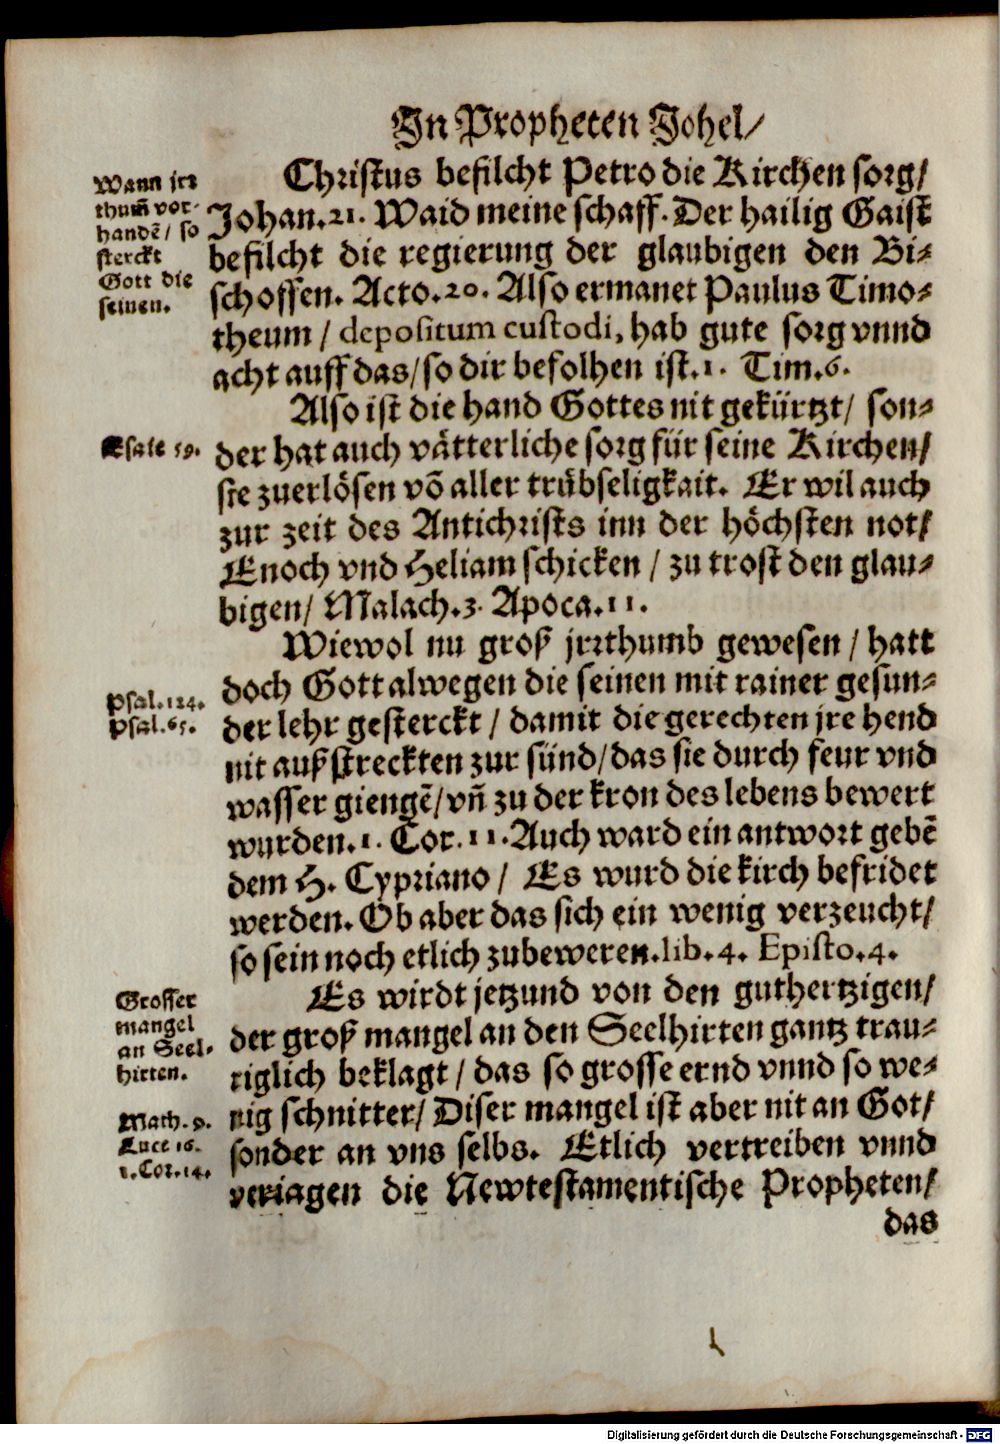 In Propheten Johel/
Wann jrr
thum̃ vor-
handē/ so
sterckt
Gott die
seinen.
Christus befilcht Petro die Kirchen sorg/
Johan.21. Waid meine schaff. Der hailig Gaist
befilcht die regierung der glaubigen den Bi-
schoffen. Acto.20. Also ermanet Paulus Timo-
theum / depositum custodi, hab gute sorg vnnd
acht auff das/ so dir befolhen ist.1. Tim.6.
Also ist die hand Gottes nit gekürtzt/ son-
Esaie 59.
der hat auch vätterliche sorg für seine Kirchen/
sie zuerlösen võ aller trübseligkait. Er wil auch
zur zeit des Antichrists inn der höchsten not/
Enoch vnd Heliam schicken / zu trost den glau-
bigen/ Malach.3. Apoca.11.
Wiewol nu groß jrrthumb gewesen / hatt
doch Gott alwegen die seinen mit rainer gesun-
Psal.124.
Psal.65.
der lehr gesterckt / damit die gerechten jre hend
nit außstreckten zur sünd/ das sie durch feur vnd
wasser giengē/ vñ zu der kron des lebens bewert
wurden.1. Cor.11. Auch ward ein antwort gebē
dem H. Cypriano / Es wurd die kirch befridet
werden. Ob aber das sich ein wenig verzeucht/
so sein noch etlich zubeweren.lib.4. Episto.4.
Es wirdt jetzund von den guthertzigen/
Grosser
mangel
an Seel-
hirten.
der groß mangel an den Seelhirten gantz trau-
riglich beklagt / das so grosse ernd vnnd so we-
nig schnitter/ Diser mangel ist aber nit an Got/
Math.9.
Luce 16.
1.Cor.14.
sonder an vns selbs. Etlich vertreiben vnnd
veriagen die Newtestamentische Propheten/
das
Digitalisierung gefördert durch die Deutsche Forschungsgemeinschaft - DFG